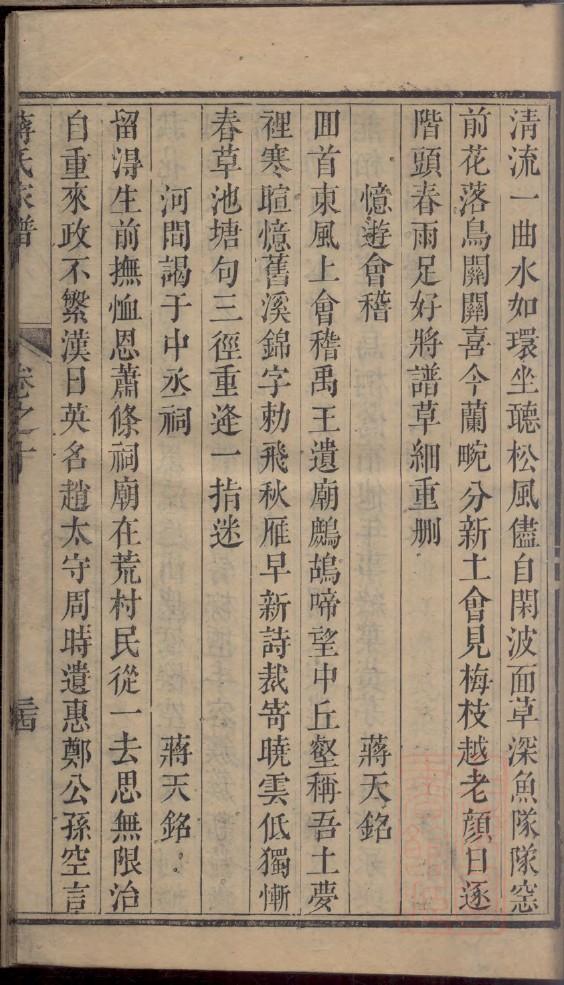 清流一曲水如環坐聽松風儘自閑波面草深魚隊隊窓
前花落鳥關關喜今蘭畹分新土會見梅枝越老顏日逐
階頭春雨足好將譜草細重刪
憶遊會稽 蔣天銘
囬首東風上會稽禹王遺廟鷓鴣啼望中丘壑稱吾土夢
裡寒暄憶舊溪錦字勅飛秋雁早新詩裁寄曉雲低獨慚
春草池塘句三徑重逢一指迷
河間謁于中丞祠 蔣天銘
留淂生前撫恤恩蕭條祠廟在荒村民從一去思無限治
自重來政不繁漢日英名趙太守周時遺惠鄭公孫空言
蔣氏家譜 卷之十 三四